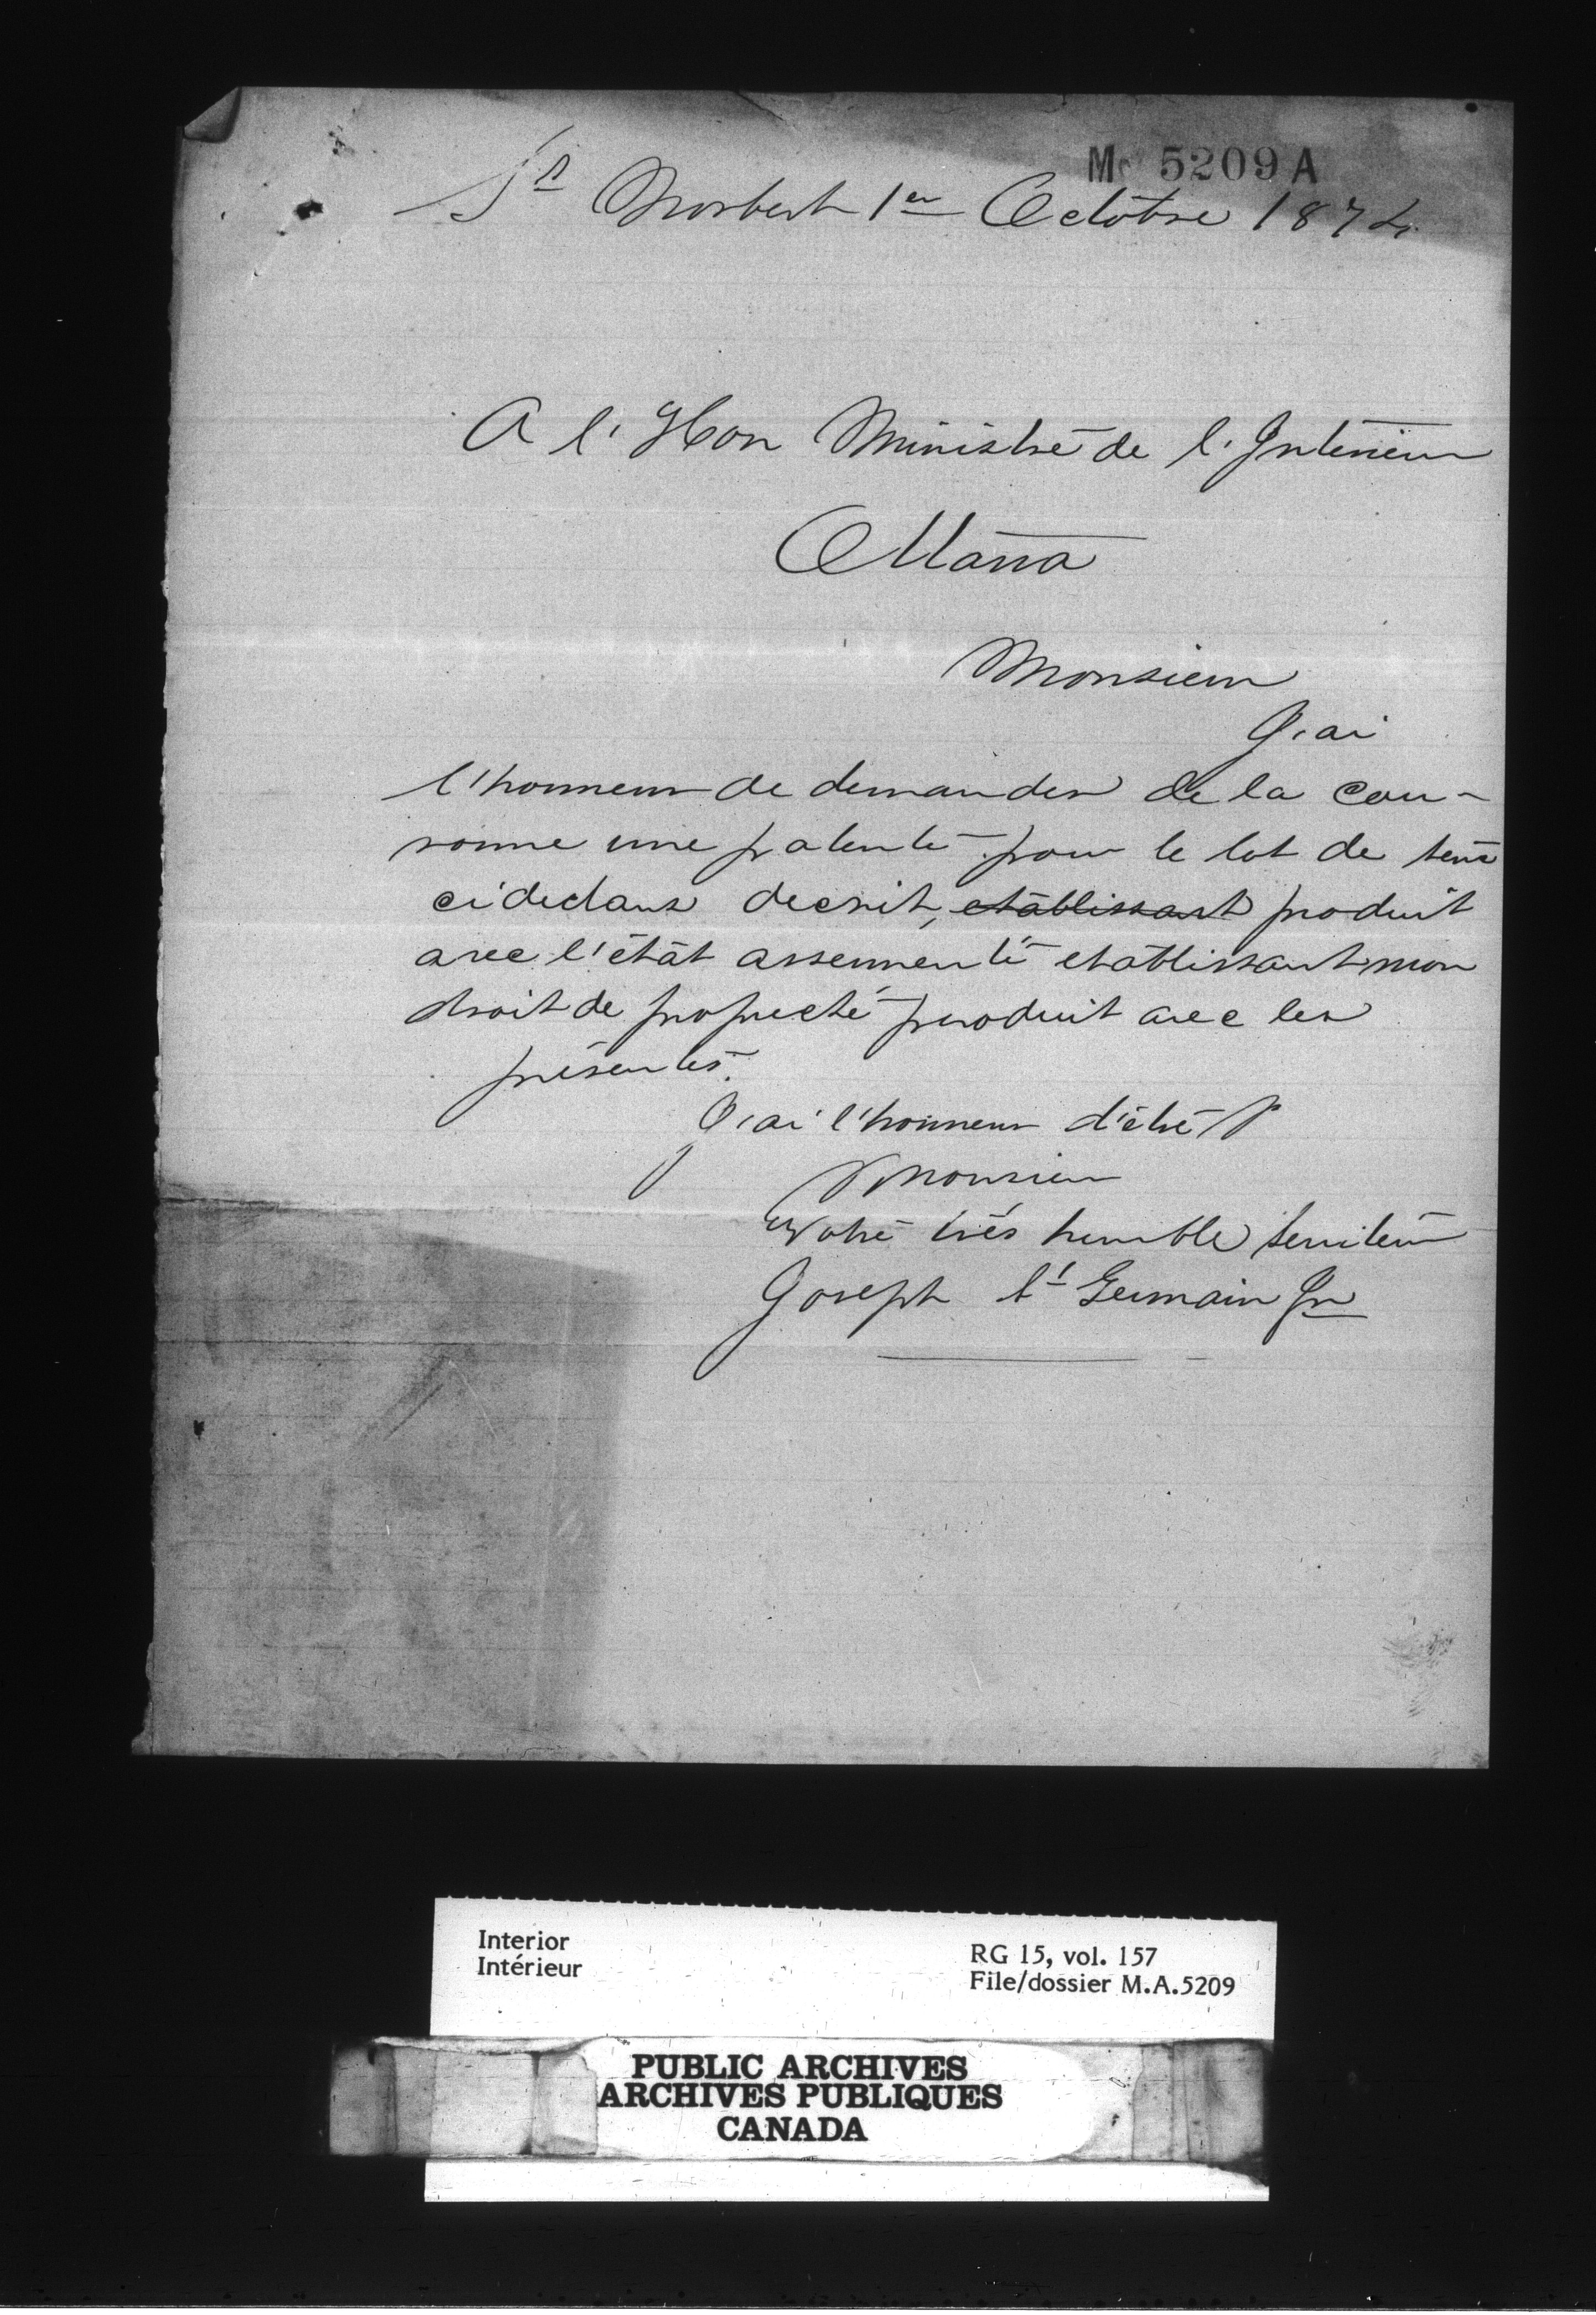 Mc 5209 A
St Norbert 1er Octobre 1874
A l'Hon Ministre de l'Intérieur
Ottawa
Monsieur
J'ai
l'honneur de demander de la cou-
ronne une patente pour le lot de terre
cidedans decrit, etablissant produit
avec l'état assermenté etablissant mon
droit de propriété produit avec les
présentes.
J'ai l'honneur d'être
Monsieur
Votre très humble serviteur
Joseph St Germain Jr
Interior
Intérieur
RG 15, vol. 157
File/dossier M.A.5209
PUBLIC ARCHIVES
ARCHIVES PUBLIQUES
CANADA